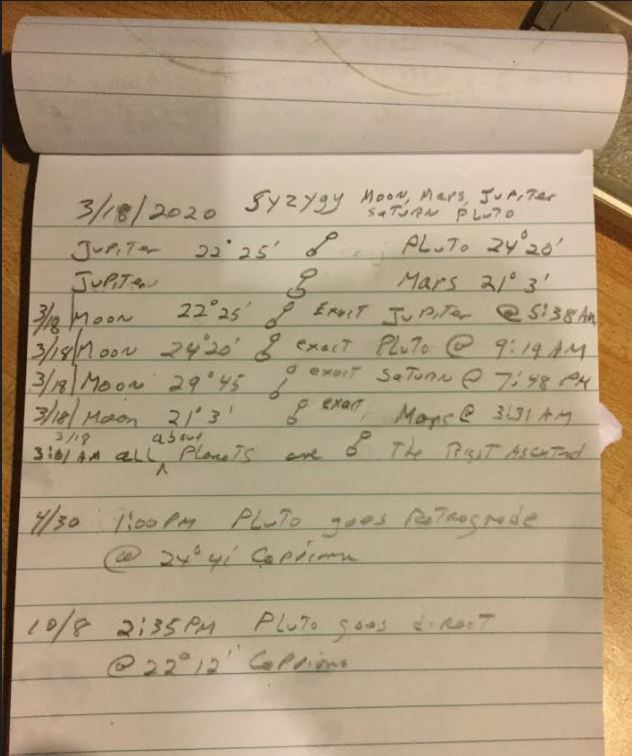 3/18/2020 Syzygy Moon, Mars, Jupiter
Saturn Pluto
Jupiter 22° 25' ☌ Pluto 24° 20'
Jupiter ☌ Mars 21° 3'
3/18 Moon 22° 25' ☌ Exact Jupiter @ 5:38 AM
3/18 Moon 24° 20' ☌ exact Pluto @ 9:19 AM
3/18 Moon 29° 45 ☌ exact Saturn @ 7:48 PM
3/18 Moon 21° 3' ☌ exact Mars @ 3:31 AM
3/18 above
3:01 AM all ^ Planets are ☌ The
4/30 1:00 PM Pluto goes Retrograde
@ 24° 41 Capricorn
10/8 2:35 PM Pluto goes direct
@ 22° 12" Capricorn